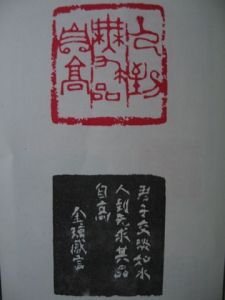 人到
無求品
自高
君子交淡如水
人到无求其品
自高